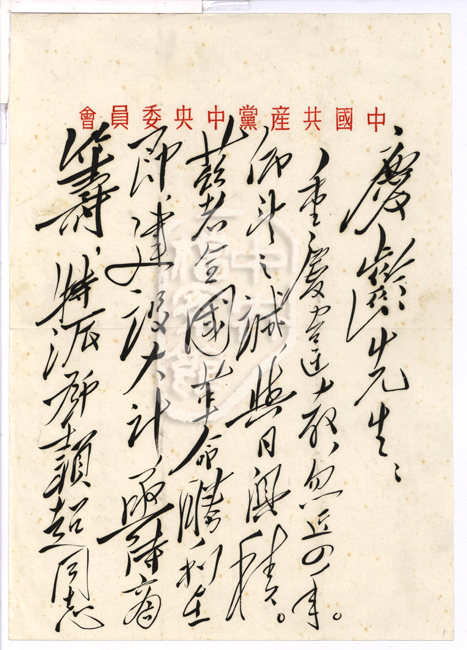 中國共産黨中央委員會
慶齡先生：
重慶違教，忽近四年。
仰望之誠，與日俱積。
兹者全國革命勝利在
即，建設大計，亟待商
籌，特派鄧穎超同志